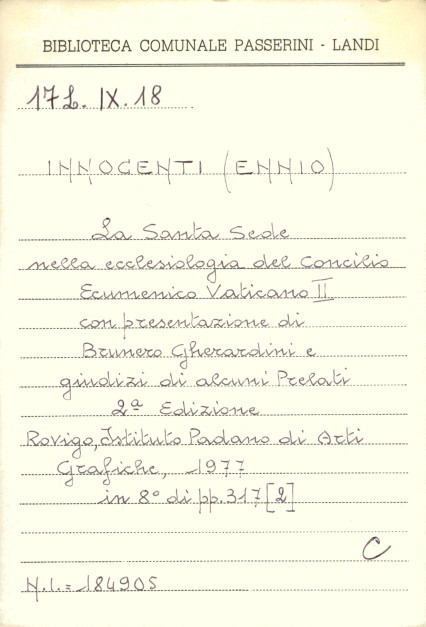 BIBLIOTECA COMUNALE PASSERINI - LANDI
17L. IX. 18
INNOCENTI (ENNIO)
La Santa Sede
nella ecclesiologia del Concilio
Ecumenico Vaticano II
con presentazione di
Brunero Gherardini e
giudizi di alcuni Prelati
2ª Edizione
Rovigo, Istituto Padano di Arti
Grafiche, 1977
in 8° di pp. 317 [2]
C
N.I. = 184905